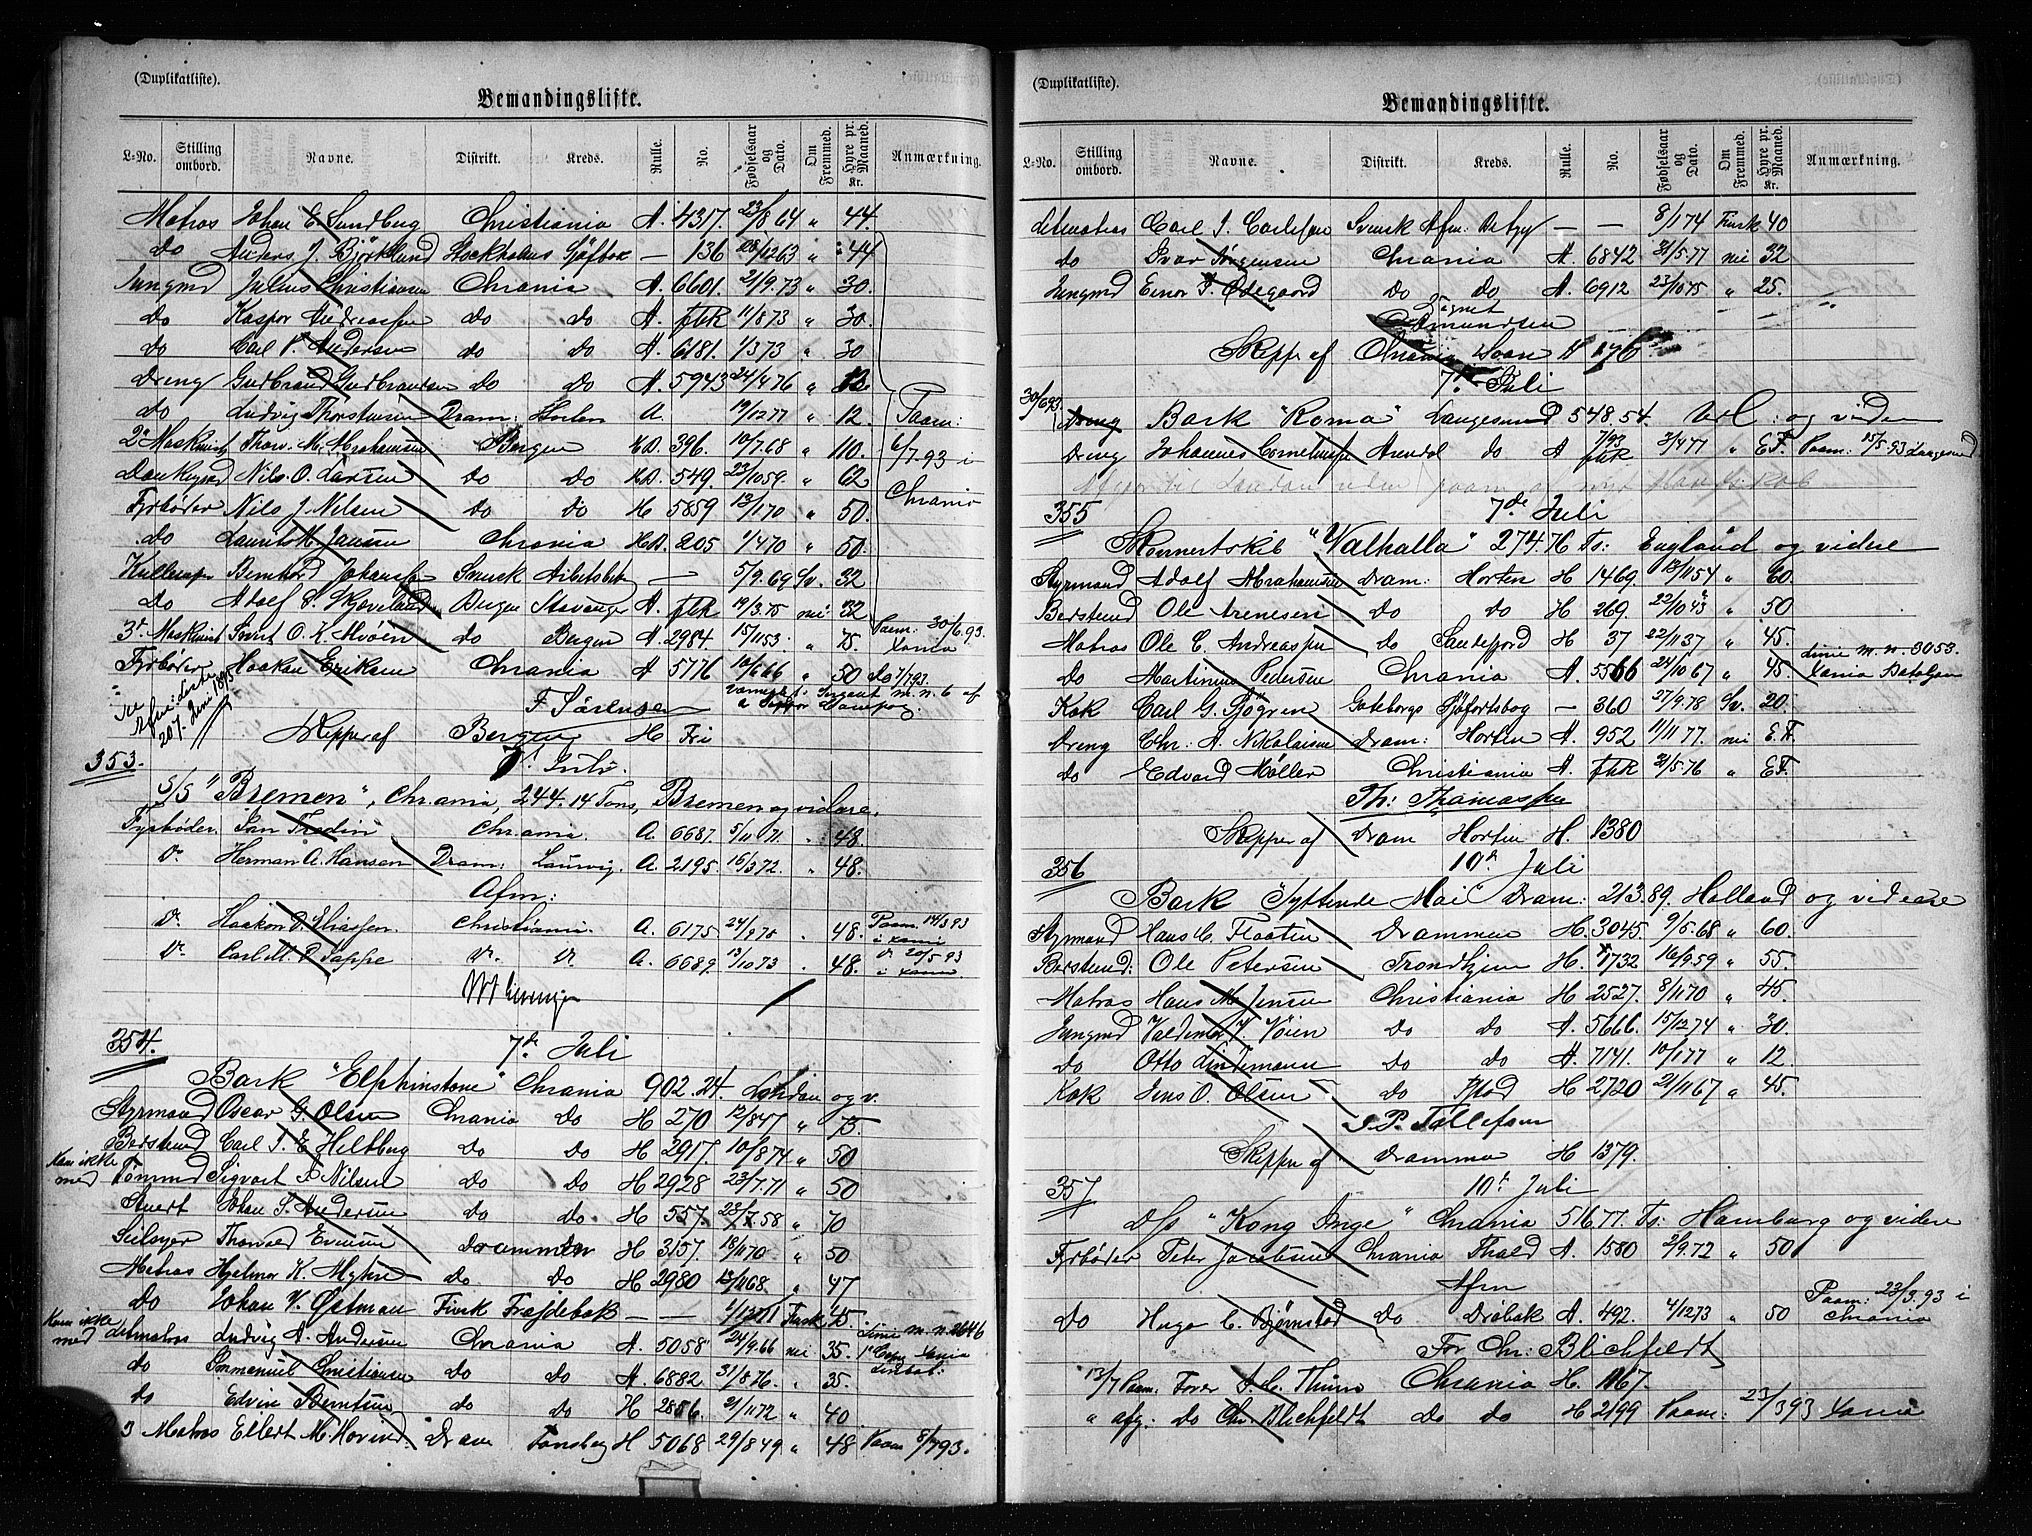 (Duplikatliste).
Bemandingsliste.
L-No. Stilling ombord. Navne. Distrikt. Kreds. Rulle. No. Fødselsaar og Dato. Om Fremmed. Hyre pr. Maaned. Kr. Anmærkning.
Matros Johan E. Sundberg Christiania A. 4317. 23/8 64 " 44.
do Anders J. Björklund Stockholms Sjöfbok — 136 /1263 " 44
Jungmd Julius Christiansen Chrania A. 6601. 21/9.73 " 30.
do Kaspar Andreassen do do A. fbk 11/8 73 " 30.
do Carl P. Andersen do do A. 6181. 1/3 73 " 30
Dreng Gudbrand Gudbrandsen do do A. 5943 24/4.76 " 12.
do Ludvig Thorstensen Dram: Horten A. 19/12 77 " 12. Paam:
2' Maskinist Thorv. M. Abrahamsen Bergen HD. 396. 10/7.68 " 110. 6/7.93 i
Donkeymd Nils O. Larsen do do HD. 549. 23/10 59. " 62 Chrania
Fyrbøder Nils J. Nilsen do do H 5859 12/1 70 " 50.
do Laurits M. Jansen Chrania HD. 205 1/4 70 " 50.
Kullemper Bernhard Johansen Svensk Arbetsbok — 5/9.69 Sv. 32
do Adolf S. Skjæveland Bergen Stavanger A. fbk 19/3.75 nei 32
3' Maskinist Sivert O. K. Moen do Bergen A. 2984. 15/11 53. " 75. Paam: 30/6.93. Xania
Fyrbøder Haakon Eriksen Chrania A 5776 10/6 66 " 50 do 7/7 93.
F Sørensen
Skipper af Bergen H Fri
353. 7' Juli.
S/S "Bremen", Chrania, 244.14 Tons, Bremen og videre.
Fyrbøder Jan Fredin Chrania. A. 6687. 5/11 71. " 48.
do Herman A. Hansen Dram: Laurvig. A. 2195. 16/3 72. " 48.
Afm:
do Haakon D. Eliassen. Christiania A. 6175. 24/9 75 . 48. Paam 14/3 93 i Xania
do Carl M. P. Tappe do do A. 6689. 13/10 73 . 48. do 20/5 93 i Xania
354. 7de Juli
Bark "Elphinstone" Chrania 902.24. London og v.
Styrmand Oscar G. Olsen Chrania do H 270 12/8 47 " 75.
Baatsmd Carl J. E. Heltberg do do H 2917. 10/8 74 " 50
Kom ikke med Tømmd Sigvart F. Nilsen do do H 2928 23/7.71 " 50
Stuert Johan S. Andersen do do H 557. 23/7.58 " 70
Seilmager Thorvald Evensen Drammen H 3157. 18/11 70. " 50
Matros Hjalmar K. Myhre do do H 2980 13/11 68. " 47
do Johan V. Østman Finsk Fræjdebok — — 1/12 71 Finsk 45.
Kom ikke med Letmatros Ludvig A. Andersen Chrania A. 5058 24/9.66 nei 35. Linie m. n. 2646
do Emmanuel Christiansen do do A. 6882. 31/8 76. " 35.
do Edvin Berntsen do do H 2856. 21/11 72 " 40
Matros Eilert M. Hovind. Dram Tønsberg H 5068 29/8 49 " 48 Paam 8/7 93.
(Duplikatliste).
Bemandingsliste.
L-No. Stilling ombord. Navne. Distrikt. Kreds. Rulle. No. Fødselsaar og Dato. Om Fremmed. Hyre pr. Maaned. Kr. Anmærkning.
Letmatros Carl J. Carlsson Svensk Afm. Betyg — — 8/1 74 Finsk 40
do Ivar Jørgensen Chrania A. 6842 31/5.77 nei 32
Jungmd Einar F. Ødegaard do do A. 6912 23/10 75 " 25.
Amundsen "
Skipper af Chrania Soon H 176
7de Juli
30/6 93 Dreng Bark "Roma" Langesund 548.54. og videre
Dreng Johannes Corneliussen Arendal do A fbk 3/4 77 " E.F. Paam: 15/5.93 Langesund
355 7de Juli
Skonnertskib "Valhalla" 274.76 Ts: England og videre
Styrmand Adolf Abrahamsen Dram: Horten H 1469. 18/11 54 " 60.
Baatsmd Ole Arnesen do do H 269. 22/10 43 " 50
Matros Ole C. Andreassen do Sandefjord H 37 22/11 37 " 45.
do Martinius Pedersen Chrania A. 5566 24/10 67 " 45 Linie m. n. 3053. Xania Bataljon
Kok Carl G. Sjögren Göteborgs Sjöfartsbog — 360 27/9.78 Sv. 20.
Dreng Chr: A. Nikolaisen Dram: Horten A. 952 11/11 77. nei E.F.
do Edvard Møller Christiania A. fbk 31/5.76 " E.F.
Th: Thomassen
Skipper af Dram Horten H. 1380
356 10de Juli
Bark "Syttende Mai" Dram: 213.89. Holland og videre
Styrmand Hans C. Flaaten Drammen H. 3045. 9/5.68 " 60.
Baatsmd: Ole Petersen Trondhjem H. 1732 16/9 59 " 55.
Matros Hans M. Jensen Christiania H 2527. 8/11 70 " 45.
Jungmd Valdemar K. Vøien do do A. 5666. 15/12 74 " 30.
do Otto Lindemann do do A. 7141. 10/1 77 " 12
Kok Jens O. Olsen do H 2720 21/11 67 " 45.
J. P. Tollefsen
Skipper af Drammen H 1379.
357 10de Juli
D/s "Kong Inge" Chrania 516.77. Ts: Hamburg og videre
Fyrbøder Peter Jacobsen Chrania A. 1580 2/9.72 " 50
Afm
do Hugo C. Bjørnstad do Drøbak A. 492. 4/12 73 " 50 Paam: 23/3.93 i Chrania
For Chr: Blichfeldt
13/7 Paam: Fører A. C. Thurn Chrania H. 1167.
" afg: do Chr. Blichfeldt do do H 2199 Paam: 23/3 93 Xania